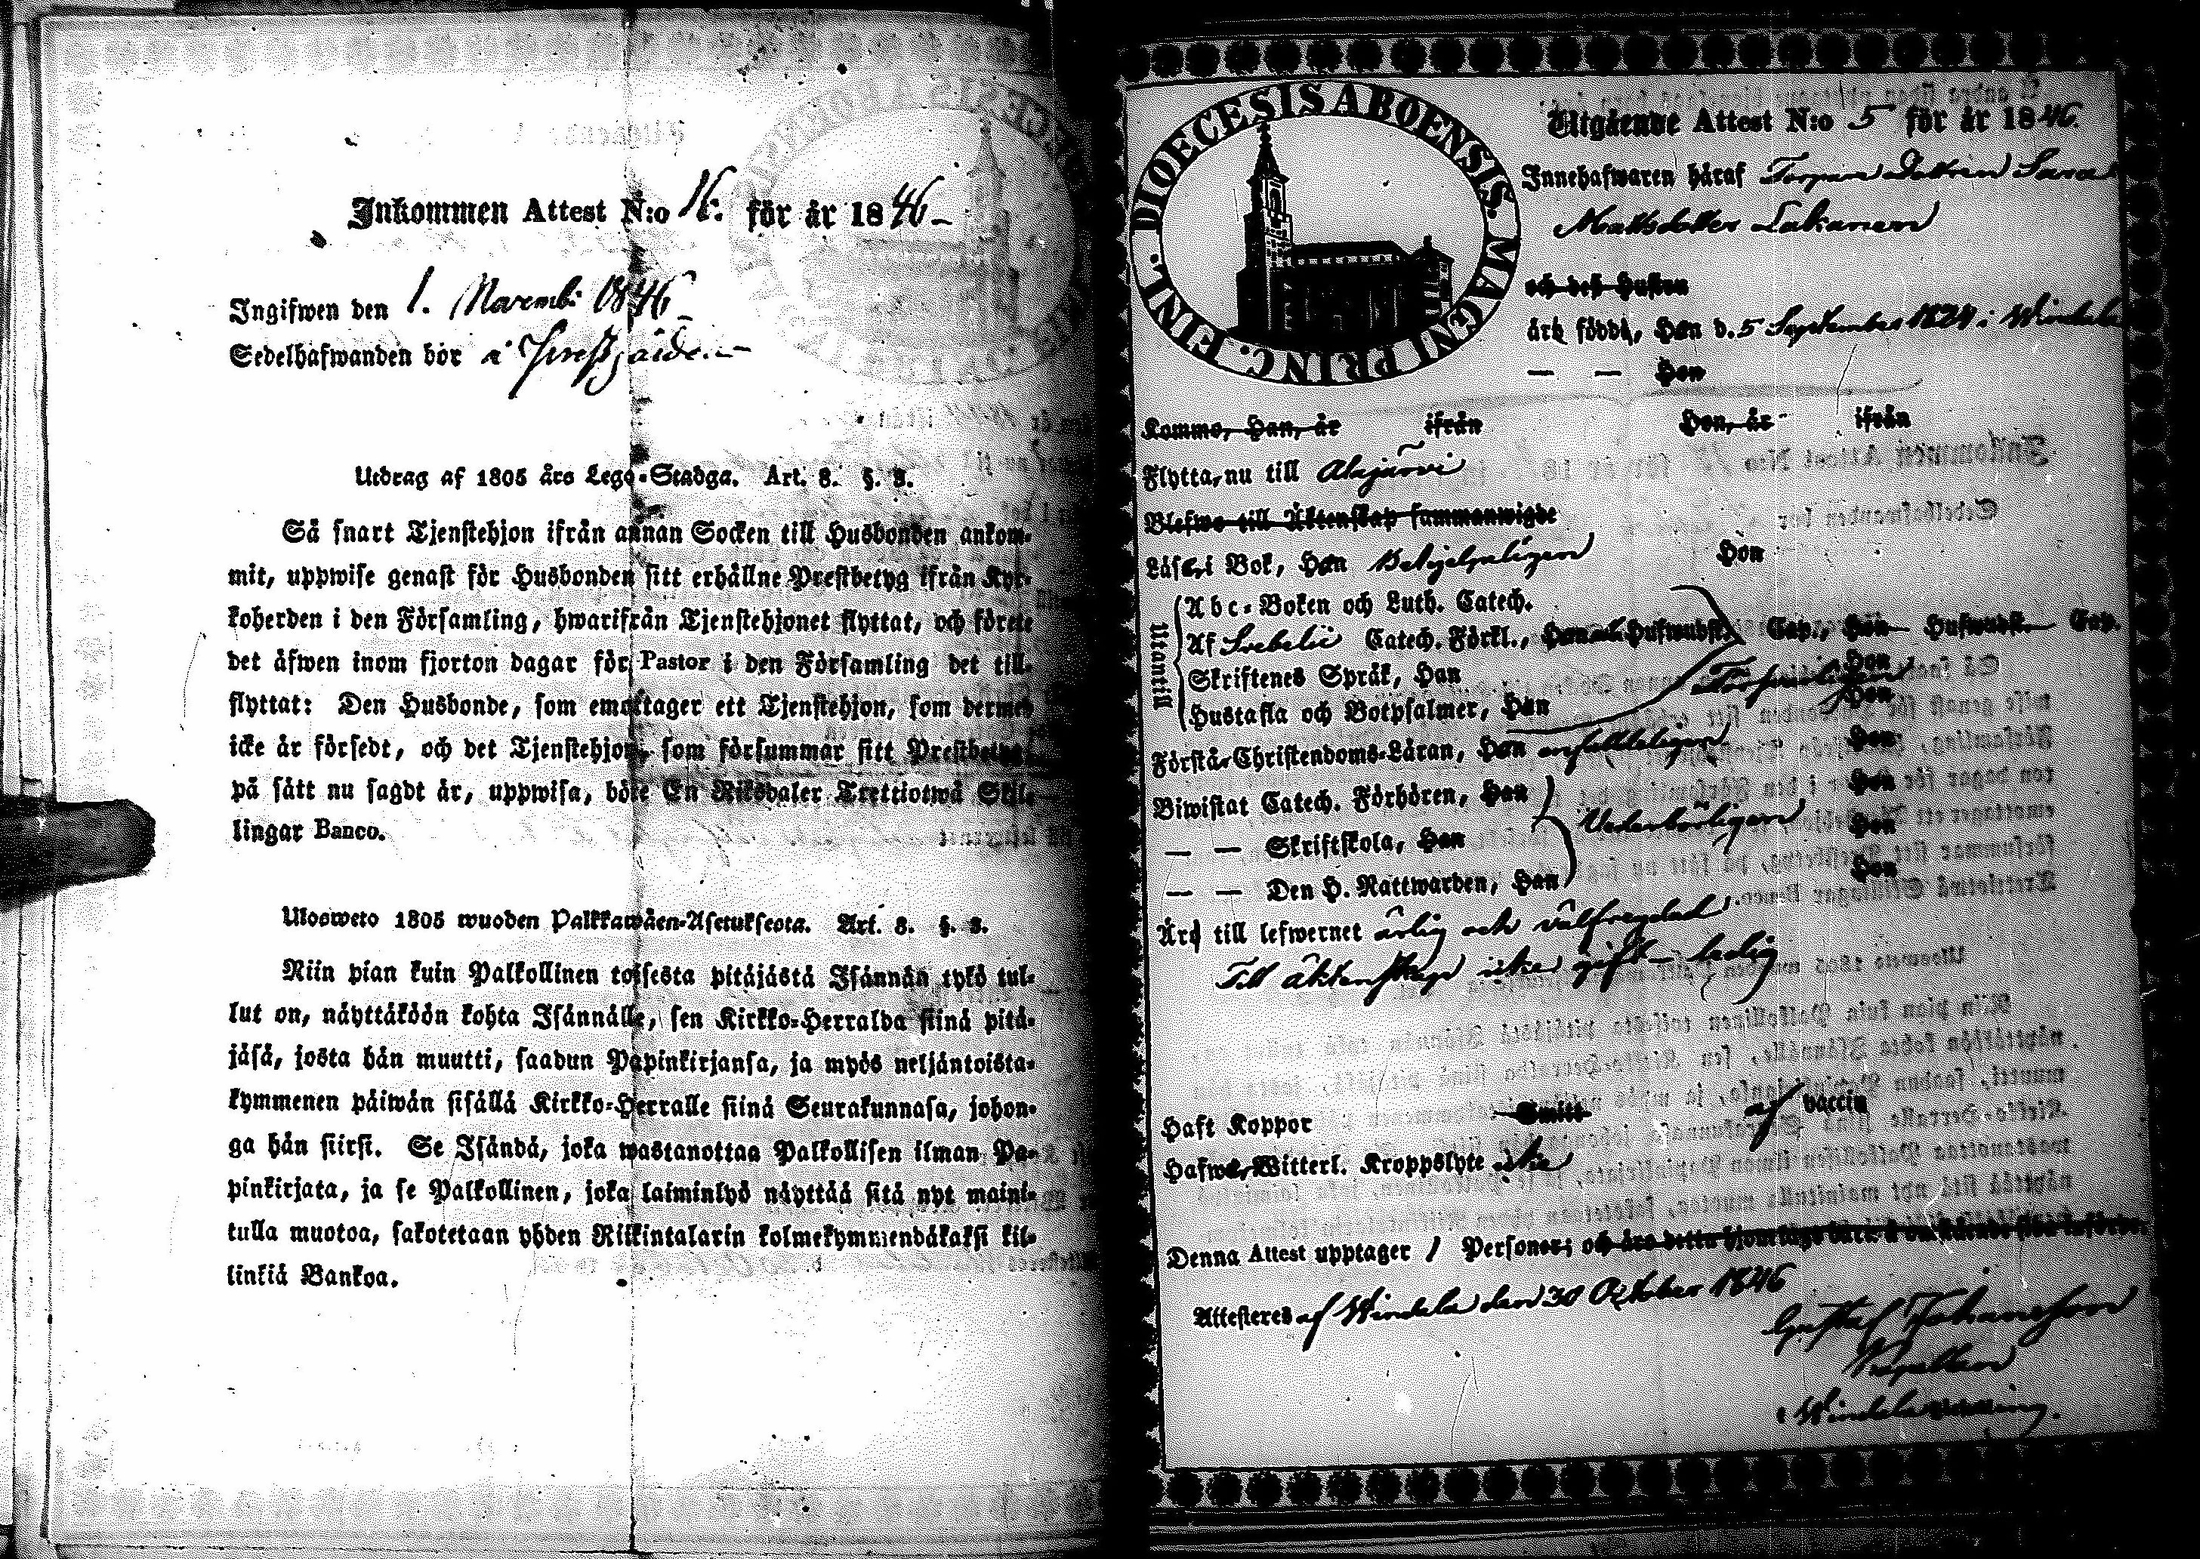 Inkommen Attest N:o 16. för år 1846
Ingifwen den 1. Novemb: 1846
Sedelhafwanden bor i
Utdrag af 1805 års Lego-Stadga. Art. 8. §. 3.
Så snart Tjenstehjon ifrån annan Socken till Husbonden ankom-
mit, uppwise genast för Husbonden sitt erhållne Prestbetyg ifrån Kyr-
koherden i den Församling, hwarifrån Tjenstehjonet flyttat, och förete
det äfwen inom fjorton dagar för Pastor i den Församling det till-
flyttat: Den Husbonde, som emottager ett Tjenstehjon, som dermed
icke är försedt, och det Tjenstehjon, som försummar sitt Prestbetyg,
på sätt nu sagdt är, uppwisa, böte En Riksdaler Trettiotwå Skil-
lingar Banco.
Ulosweto 1805 wuoden Palkkawäen-Asetuksesta. Art. 8. §. 3.
Niin pian kuin Palkollinen toisesta pitäjästä Isännän tykö tul-
lut on, näyttäköön kohta Isännälle, sen Kirkko-Herralda siinä pitä-
jäsä, josta hän muutti, saadun Papinkirjansa, ja myös neljäntoista-
kymmenen päiwän sisällä Kirkko-Herralle siinä Seurakunnasa, johon-
ga hän siirsi. Se Isändä, joka wastanottaa Palkollisen ilman Pa-
pinkirjata, ja se Palkollinen, joka laiminlyö näyttää sitä nyt maini-
tulla muotoa, sakotetaan yhden Riikintalarin kolmekymmendäkaksi kil-
linkiä Bankoa.
DIOECESIS ABOENSIS. MAGNI PRINC. FINL.
Utgående Attest N:o 5 för år 1846.
Innehafwaren häraf Torpare Dottren Sara
Mattsdotter Lakanen
och dess Hustru
är född, Han d. 5 September 1824 i Windala
— — Hon
Kommo, Han, år ifrån Hon, år ifrån
Flytta, nu till Alajärvi
Blefwo till Äktenskap sammanwigde
Läser i Bok, Han Behjelpeligen Hon
Utantill
Abc-Boken och Luth. Catech.
Af Svebelii Catech. Förkl., Han Hufwudst. Cap., Hon Hufwudst. Cap.
Skriftenes Språk, Han Hon
Hustafla och Botpsalmer, Han Hon
Förstå Christendoms-Läran, Han Hon
Biwistat Catech. Förhören, Han Hon
— — Skriftskola, Han Vederbörligen Hon
— — Den H. Nattwarden, Han Hon
Är till lefwernet ärlig och välfreydad
Till äktenskap icke gift - ledig
Haft Koppor Smitt af vaccin
Hafwa, Witterl. Kroppslyte icke
Denna Attest upptager 1 Personer; och
Attesteras af Windala den 30 October 1846
Gustaf Johansson
Kapellan
i Windala